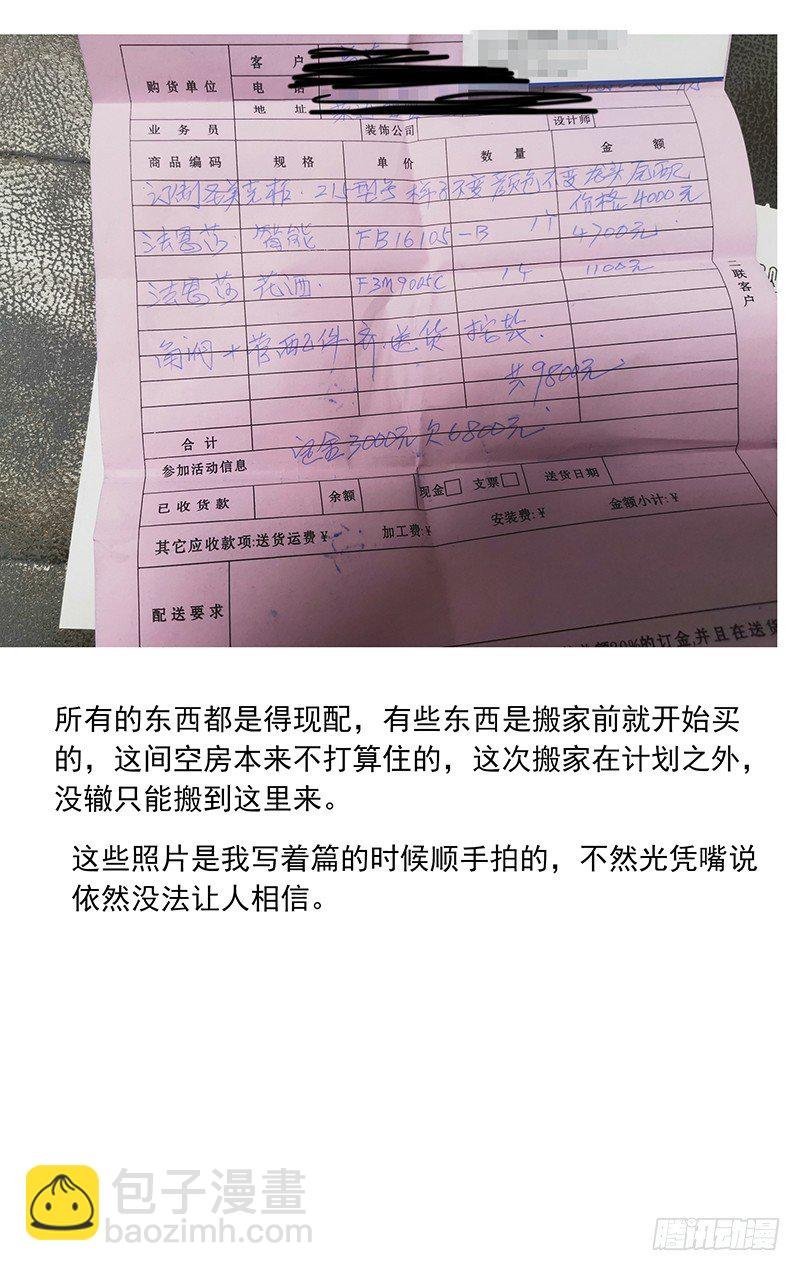 购货单位
客 户
电 话
地 址
业务员
装饰公司
设计师
商品编码 规格 单价 数量 金额
价格4000元
法恩莎 智能 FB16105-B 1个 4700元
法恩莎 花洒 F3M9005C 1个 1100元
角阀+
送货
共9800元
合计
定金3000元欠6800元
参加活动信息
已收货款 余额 现金 支票 送货日期
其它应收款项:送货运费¥ 加工费:¥ 安装费:¥ 金额小计:¥
配送要求
二联客户
30%的订金,并且在送货
所有的东西都是得现配，有些东西是搬家前就开始买
的，这间空房本来不打算住的，这次搬家在计划之外，
没辙只能搬到这里来。
这些照片是我写着篇的时候顺手拍的，不然光凭嘴说
依然没法让人相信。
包子漫畫
baozimh.com
腾讯动漫